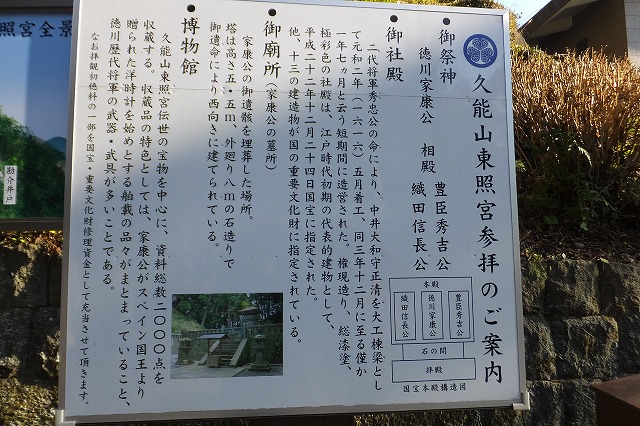 久能山東照宮参拝のご案内
御祭神
徳川家康公 相殿 豊臣秀吉公
織田信長公
御社殿
二代将軍秀忠公の命により、中井大和守正清を大工棟梁とし
て元和二年（一六一六）五月着工、同三年十二月に至る僅か
一年七ヵ月と云う短期間に造営された。権現造り、総漆塗、
極彩色の社殿は、江戸時代初期の代表的建物として、
平成二十二年十二月二十四日国宝に指定された。
他、十三の建造物が国の重要文化財に指定されている。
御廟所（家康公の墓所）
家康公の御遺骸を埋葬した場所。
塔は高さ五・五ｍ、外廻り八ｍの石造りで
御遺命により西向きに建てられている。
博物館
久能山東照宮伝世の宝物を中心に、資料総数二〇〇〇点を
収蔵する。収蔵品の特色としては、家康公がスペイン国王より
贈られた洋時計を始めとする舶載の品々がまとまっていること、
徳川歴代将軍の武器・武具が多いことである。
なお拝観初穂料の一部を国宝・重要文化財修理資金として充当させて頂きます。
本殿
豊臣秀吉公
徳川家康公
織田信長公
石の間
拝殿
国宝本殿構造図
照宮全景
勘介井戸